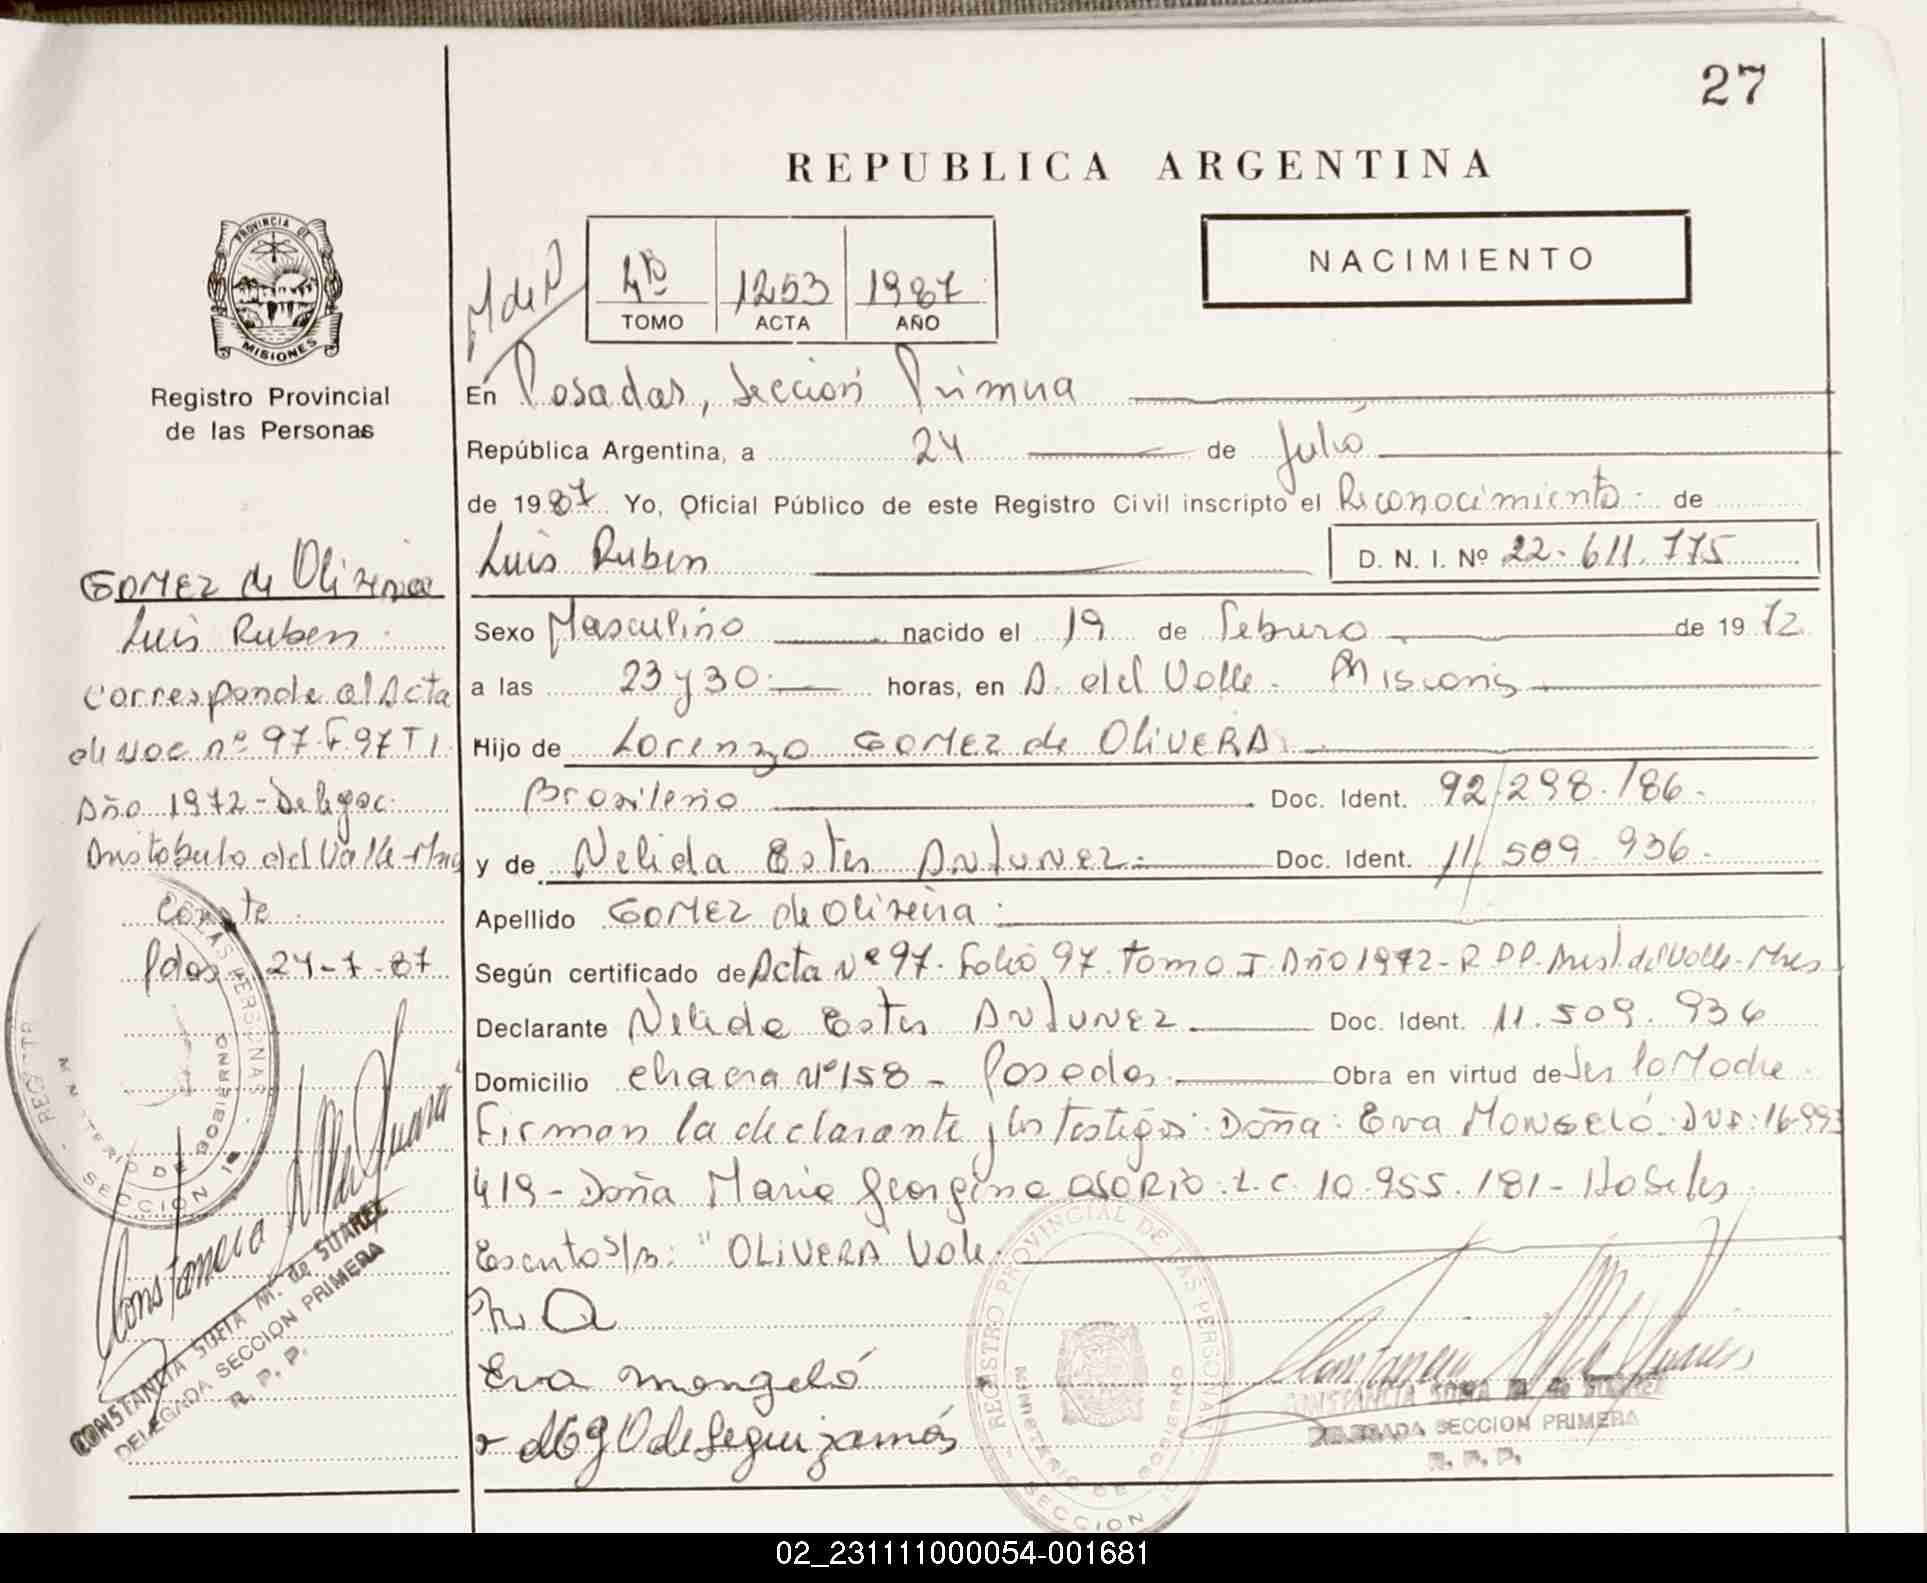 27
REPUBLICA ARGENTINA
NACIMIENTO
PROVINCIA DE
MISIONES
Registro Provincial
de las Personas
M de P
4º 1253 1987
TOMO ACTA AÑO
En Posadas, Sección Primera
República Argentina, a 24 de Julio
de 1987 Yo, Oficial Público de este Registro Civil inscripto el Reconocimiento de
Luis Ruben D. N. I. Nº 22.611.775
Sexo Masculino nacido el 19 de Febrero de 1972
a las 23 y 30 horas, en A. del Valle. Misiones
Hijo de Lorenzo GOMEZ de OLIVERA
Brasilerio Doc. Ident. 92/298.186
y de Nelida Ester ANTUNEZ Doc. Ident. 11.509.936
Apellido GOMEZ de Oliveira
Según certificado de Acta Nº 97. Folio 97. Tomo I. Año 1972 - R.P.P. Arist. del Valle - Mnes
Declarante Nelida Ester ANTUNEZ Doc. Ident. 11.509.936
Domicilio chacra Nº 158 - Posadas Obra en virtud de Ser la Madre
Firman la declarante y los testigos: Doña: Eva MONGELÓ DNI: 16.993
419 - Doña Maria Georgina OSORIO L.C. 10.955.181 - Habiles
Escrito s/b: "OLIVERA" Vale.
N. A
Eva mongeló
O de Leguizamón
GOMEZ de Oliveira
Luis Ruben
Corresponde al Acta
de Nac nº 97 F. 97 T I
Año 1972 - Delegac:
Aristobulo del Valle - Mnes
Conste
Pdas, 24-7-87
CONSTANCIA SORIA M. de SUAREZ
DELEGADA SECCION PRIMERA
R. P. P.
REGISTRO PROVINCIAL DE LAS PERSONAS
MINISTERIO DE GOBIERNO
SECCION 1º
CONSTANCIA SORIA M. de SUAREZ
DELEGADA SECCION PRIMERA
R. P. P.
02_231111000054-001681